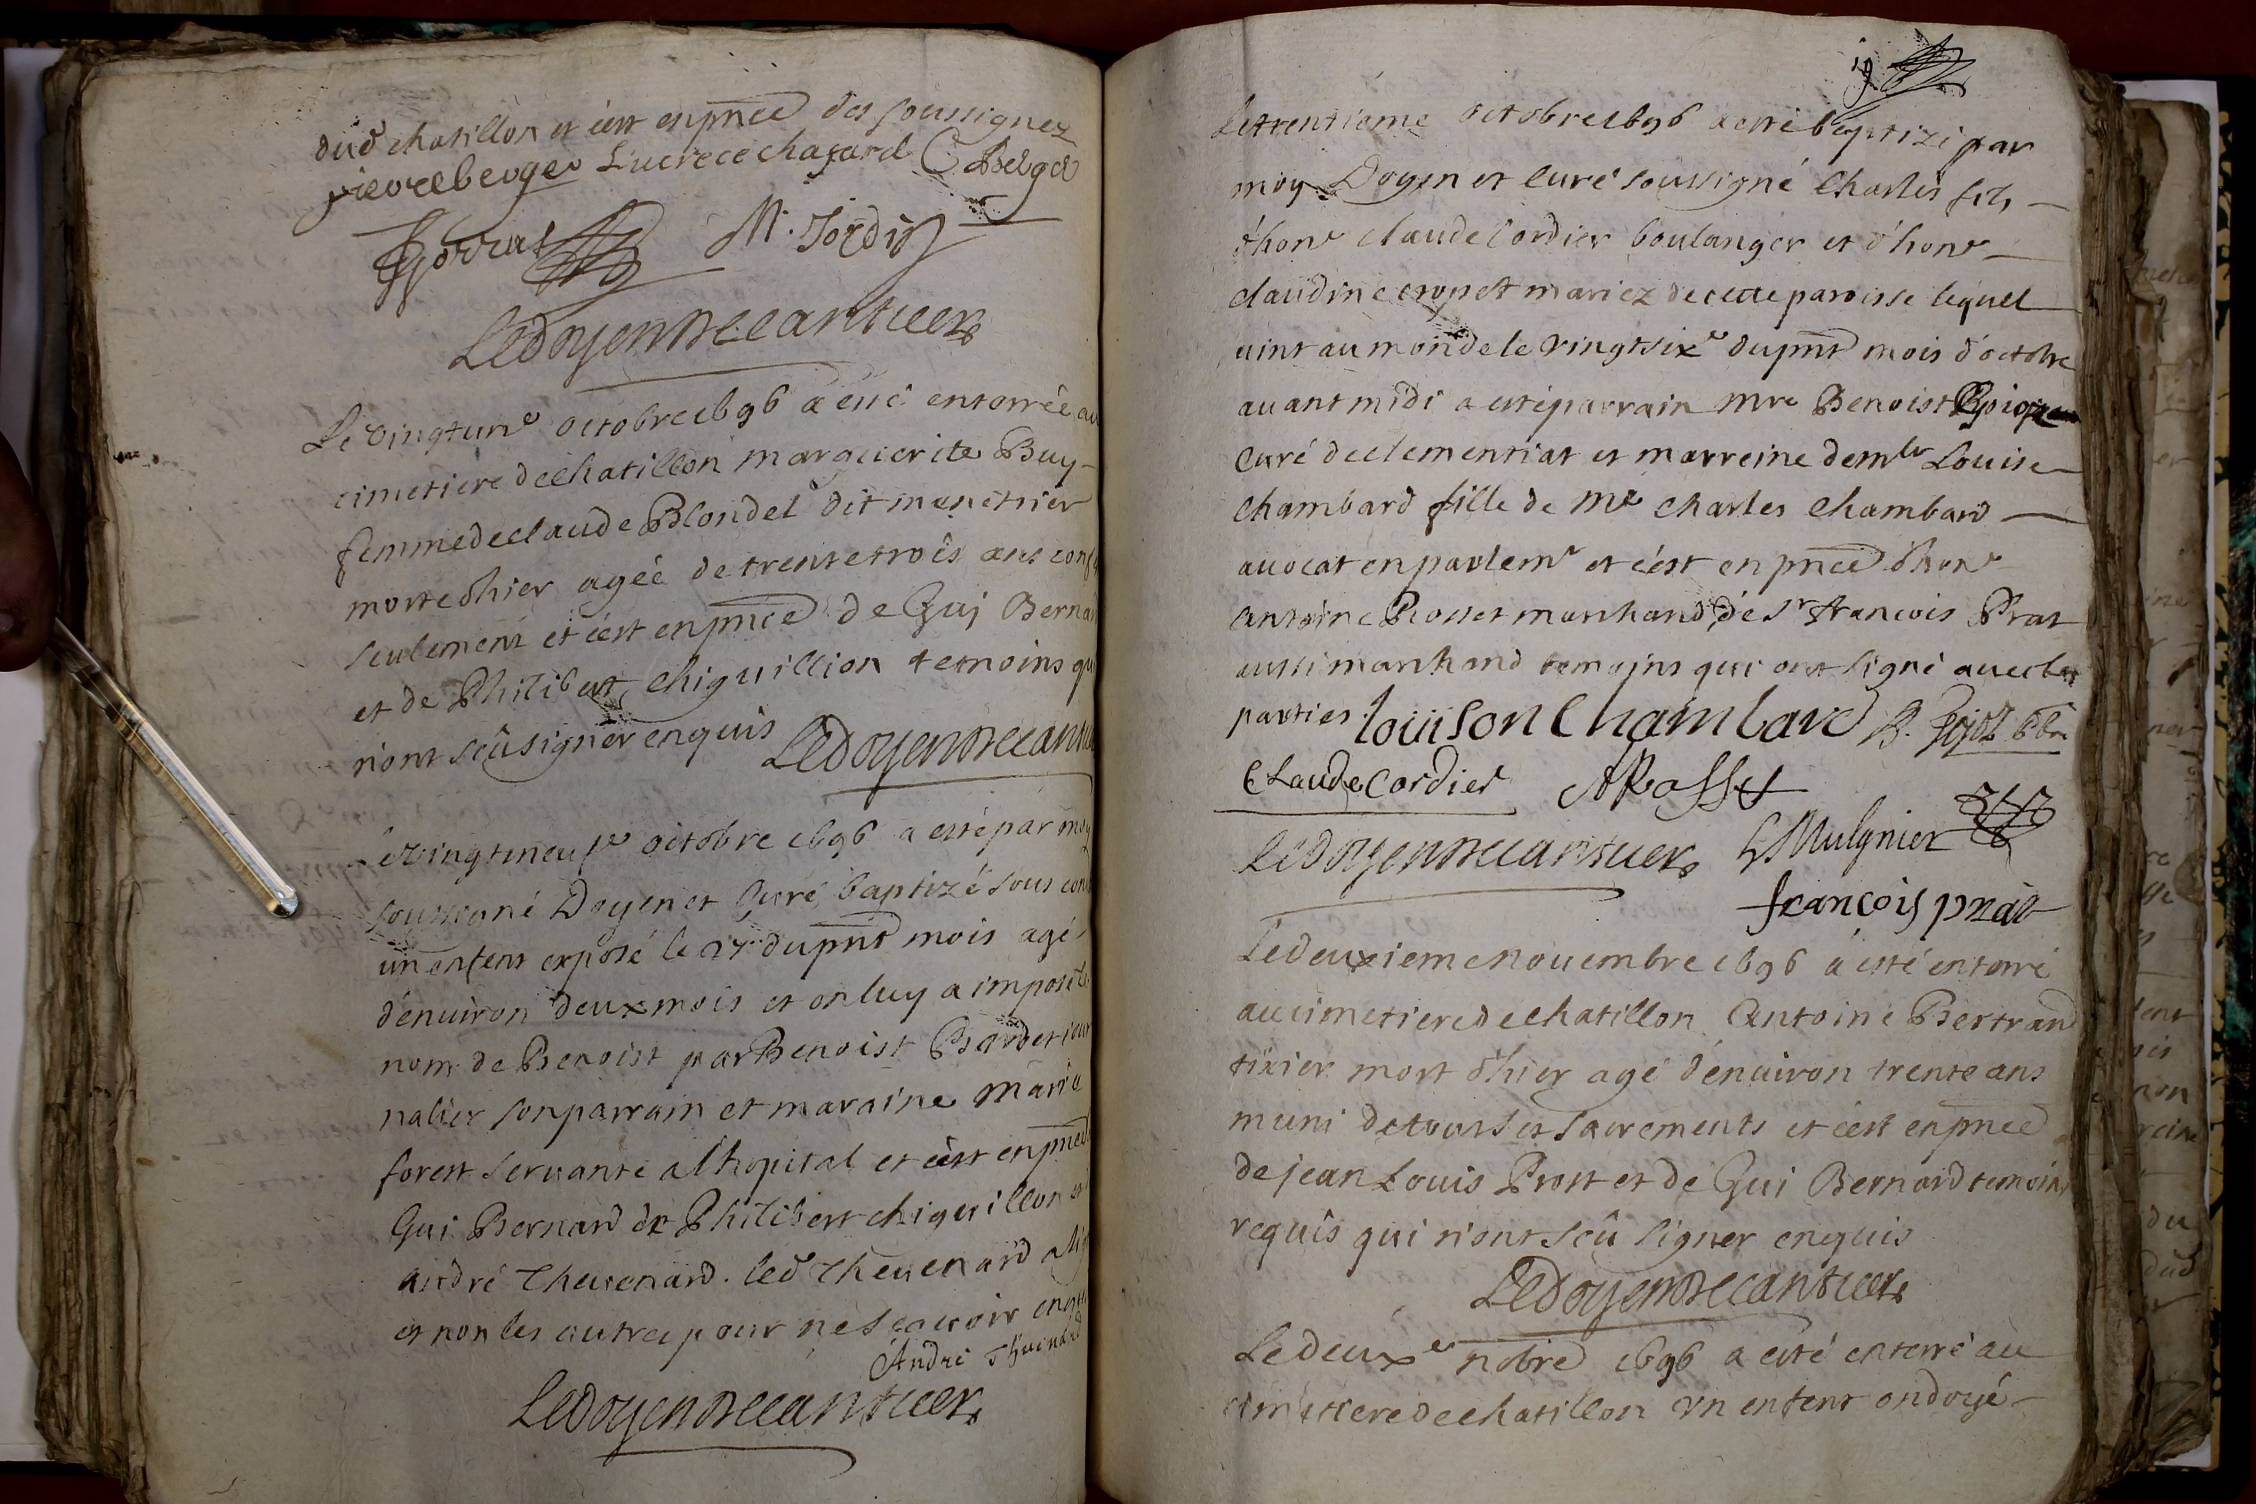 dud chatillon et c'est en pnce des soussignez
pierre berger Lucrece chasard C Berger
M. Jordin
Ledoyen Decantuer
Le vingtune octobre 1696 a esté enterrée au
cimetiere de chatillon marguerite Buy-
femme de claude Blondel dit menetrier
morte d'hier ageé de trente trois ans conf
seulement et c'est en pnce de Gui Bernar
et de Philibert chiquillion temoins qu
n'ont sceû signer enquis Ledoyen Decantu
le Vingtneufe octobre 1696 a esté par moy
soussigné Doyen et Curé baptizé sous cond
un enfent exposé le 27 du pnt mois agé
d'enuiron deux mois et on luy a imposé le
nom de Benoist par Benoist Barbet jour
nalier son parrain et maraine marie
forest seruante a l'hopital et c'est en pnce
Gui Bernard de Philibert chiquillon et
andré Theuenard. led Theuenard a sig
et non les autres pour ne scauoir enq
André Thuenard
Ledoyen Decantuer
19
Le trentiéme octobre 1696 a esté baptizé par
moy Doyen et Curé soussigné Charles fils
d'hone claude Cordier boulanger et d'hone
claudine cropet mariez de cette paroisse lequel
uint au monde le vingtsixe du pnt mois d'octobre
auant midi a esté parrain mre Benoist
Curé de clementiat et marreine demlle Louise
Chambard fille de Me Charles Chambard
auocat en parlemt et c'est en pnce d'hone
Antoine Rosset marchand, de Sr francois Prat
aussi marchand temoins qui ont signé auec les
parties. louison Chambard B.
Claude Cordier A Rosset
Ledoyen Decantuer Mulgnier
françois prat
Le deuxieme Nouembre 1696 a esté enterré
au cimetiere de chatillon Antoine Bertrand
tixier mort d'hier agé d'enuiron trente ans
muni de tous ses sacrements et c'est en pnce
de jean Louis Prost et de Gui Bernard temoins
requis qui n'ont sceû signer enquis
Ledoyen Decantuer
Le deuxe nobre 1696 a esté enterré au
cimetiere de chatillon vn enfent ondoyé